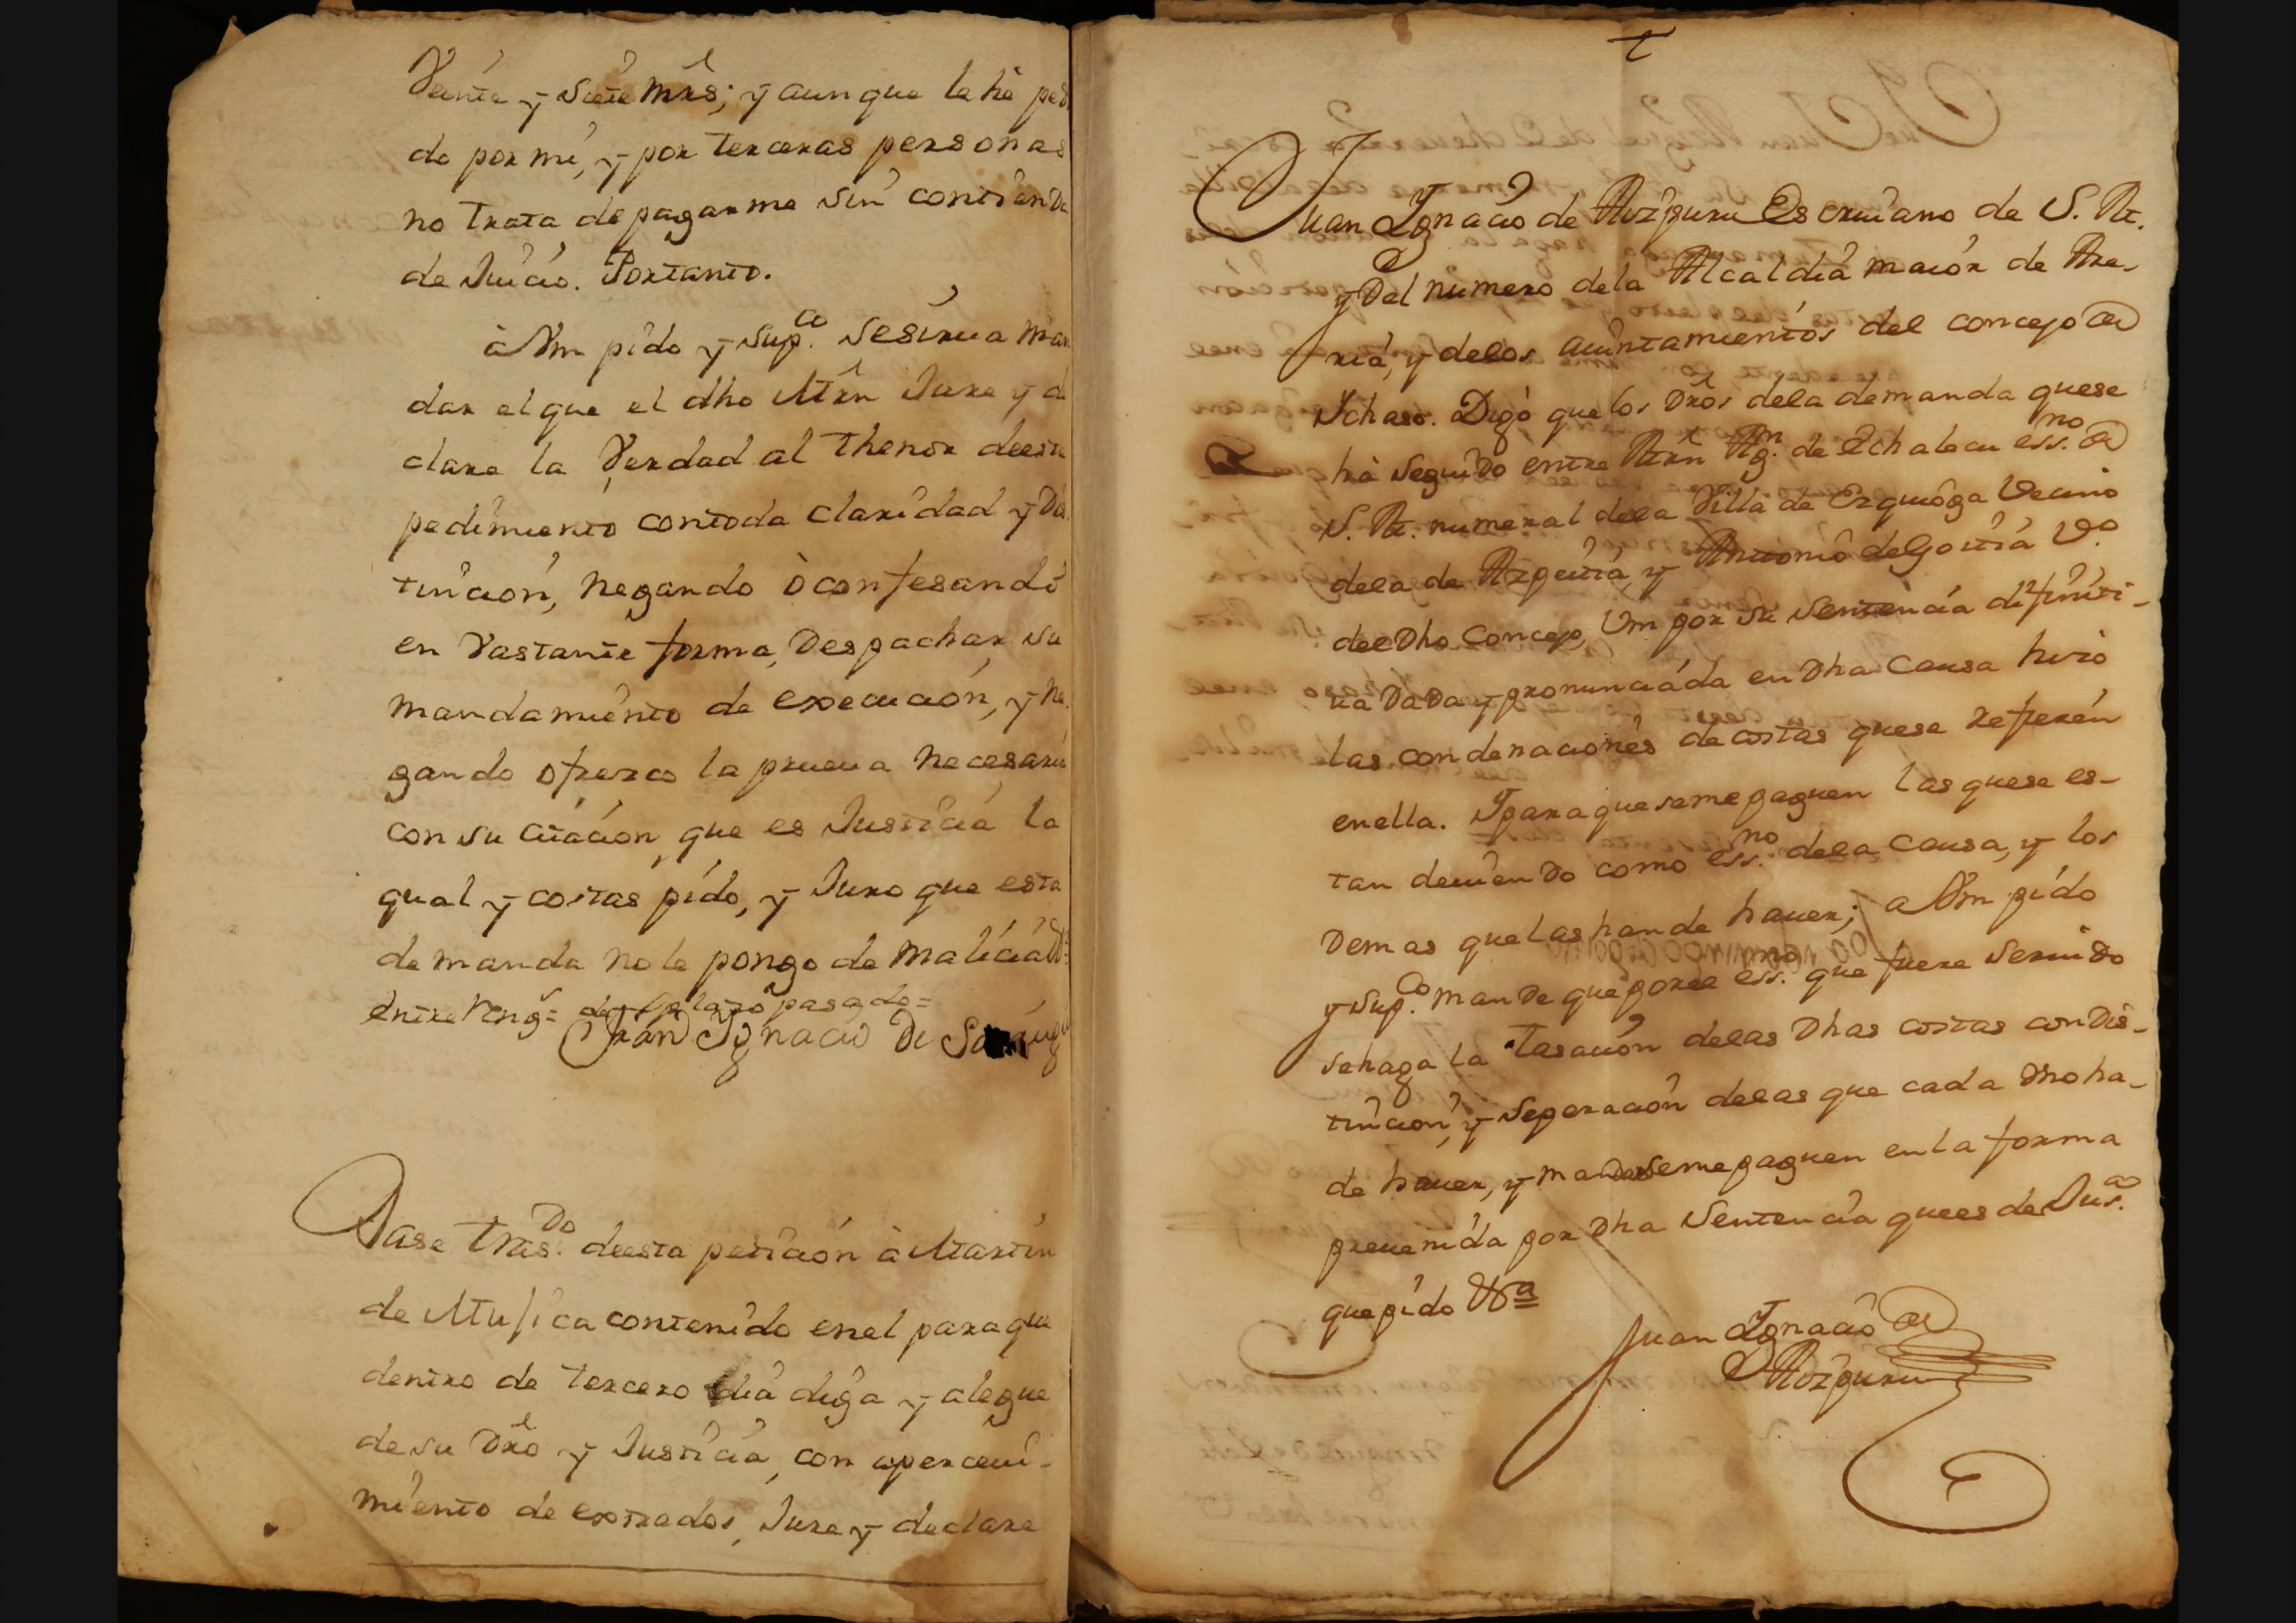 Veinte y siete mrs; y aunque le hè pedi
do por mi, y por terceras personas
no trata de pagarme sin contienda
de Juicio. Portanto.
à Vm pido y sup.co se sirua man
dar el que el dho Mrn Jure y de
clare la Verdad al thenor de este
pedimiento contoda claridad y Dis
tincion, negando ò confesando
en Vastante forma, Despachar su
mandamiento de execucion, y ne
gando ofrezco la prueua necesaria
con su citacion, que es Justicia la
qual y costas pido, y Juro que esta
demanda no le pongo de malicia
entre reng.s = del plazo pasado =
Juan Ygnacio De
Dase tras.do de esta peticion à Martin
de Mujica contenido en el para que
dentro de tercero dia diga y alegue
de su Dro y Justicia, con aperceui-
miento de extrados, Jure y declare
t
Juan Ygnacio de Aizpuru Escriuano de S. M.
y Del numero dela Alcaldia maior de Are-
ria, y delos aiuntamientos del concejo de
Ichaso. Digo que los Dros dela demanda quese
hà seguido entre Mrn Ag.n de Echalecu ess.no de
S. M. numeral dela Villa de Ezquioga Vecino
dela de Azpeitia, y Antonio de Goitia V.o
del Dho Concejo, Vm por su Sentencia difiniti-
ua Dada y pronunciada en Dha Causa hizo
las condenaciones de costas quese refieren
enella. Y para que se me paguen las quese es-
tan deuiendo como ess.no dela Causa, y los
Demas que las han de hauer; a Vm pido
y sup.co mande que por el ess.no que fuere seruido
se haga la tasacion delas Dhas costas con Dis-
tincion, y separacion delas que cada Vno ha-
de hauer, y mandar se me paguen en la forma
preuenida por Dha Sentencia que es de Jus.a
que pido &a
Juan Ygnacio de
Aizpuru